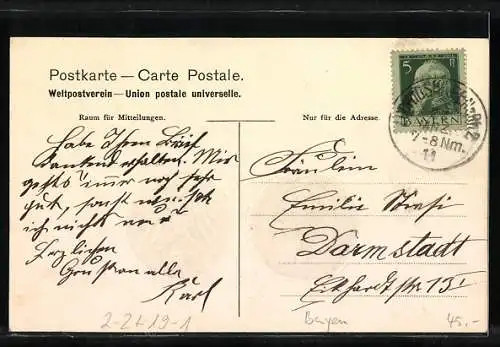 Postkarte — Carte Postale.
Weltpostverein — Union postale universelle.
Raum für Mitteilungen.
Nur für die Adresse.
5
BAYERN
7-8 Nm.
11
Habe Ihren Brief
dankend erhalten. Mir
geht's immer noch sehr
gut, sonst
ich nichts
Herzlichen
Gruß an alle
Karl
Fräulein
Emilie
Darmstadt
2-21-19-1
Bayern
45.-